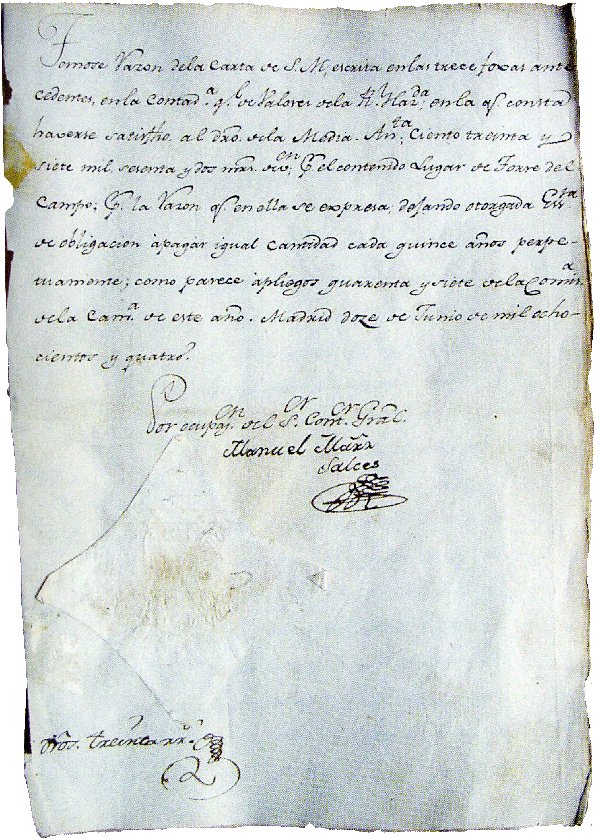 Tomose Razon de la Carta de S. M, escrita en las trece foxas ante
cedentes, en la Contad.ª g.l de Valores de la R.l Haz.da; en la q.e consta
haverse satisfho, al dro. de la Media An.ta Ciento treinta y
siete mil, sesenta y dos mrs. de v.on; P.r el contenido Lugar de Torre del
Campo; P.r la Razon q.e en ella se expresa, dejando otorgada Ess.ra
de obligacion à pagar igual Cantidad cada quince años perpe-
tuamente; como parece à pliegos quarenta y siete de la Comis.n
de la Cam.ª de este año. Madrid doze de Junio de mil ocho-
cientos y quatro.
Por ocupaz.on del S.or Cont.or Gral.
Manuel Mãrz
Salces
Dros. treinta rr.s